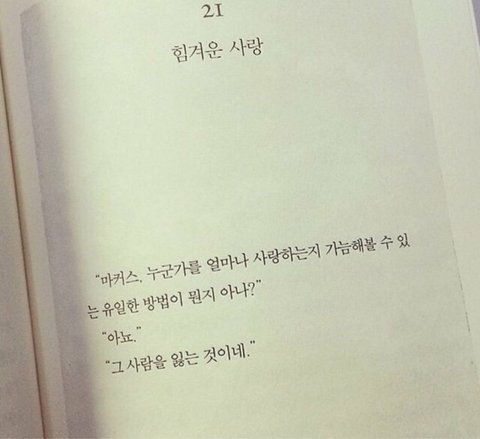 21
힘겨운 사랑
“마커스, 누군가를 얼마나 사랑하는지 가늠해볼 수 있
는 유일한 방법이 뭔지 아나?”
“아뇨.”
“그 사람을 잃는 것이네.”